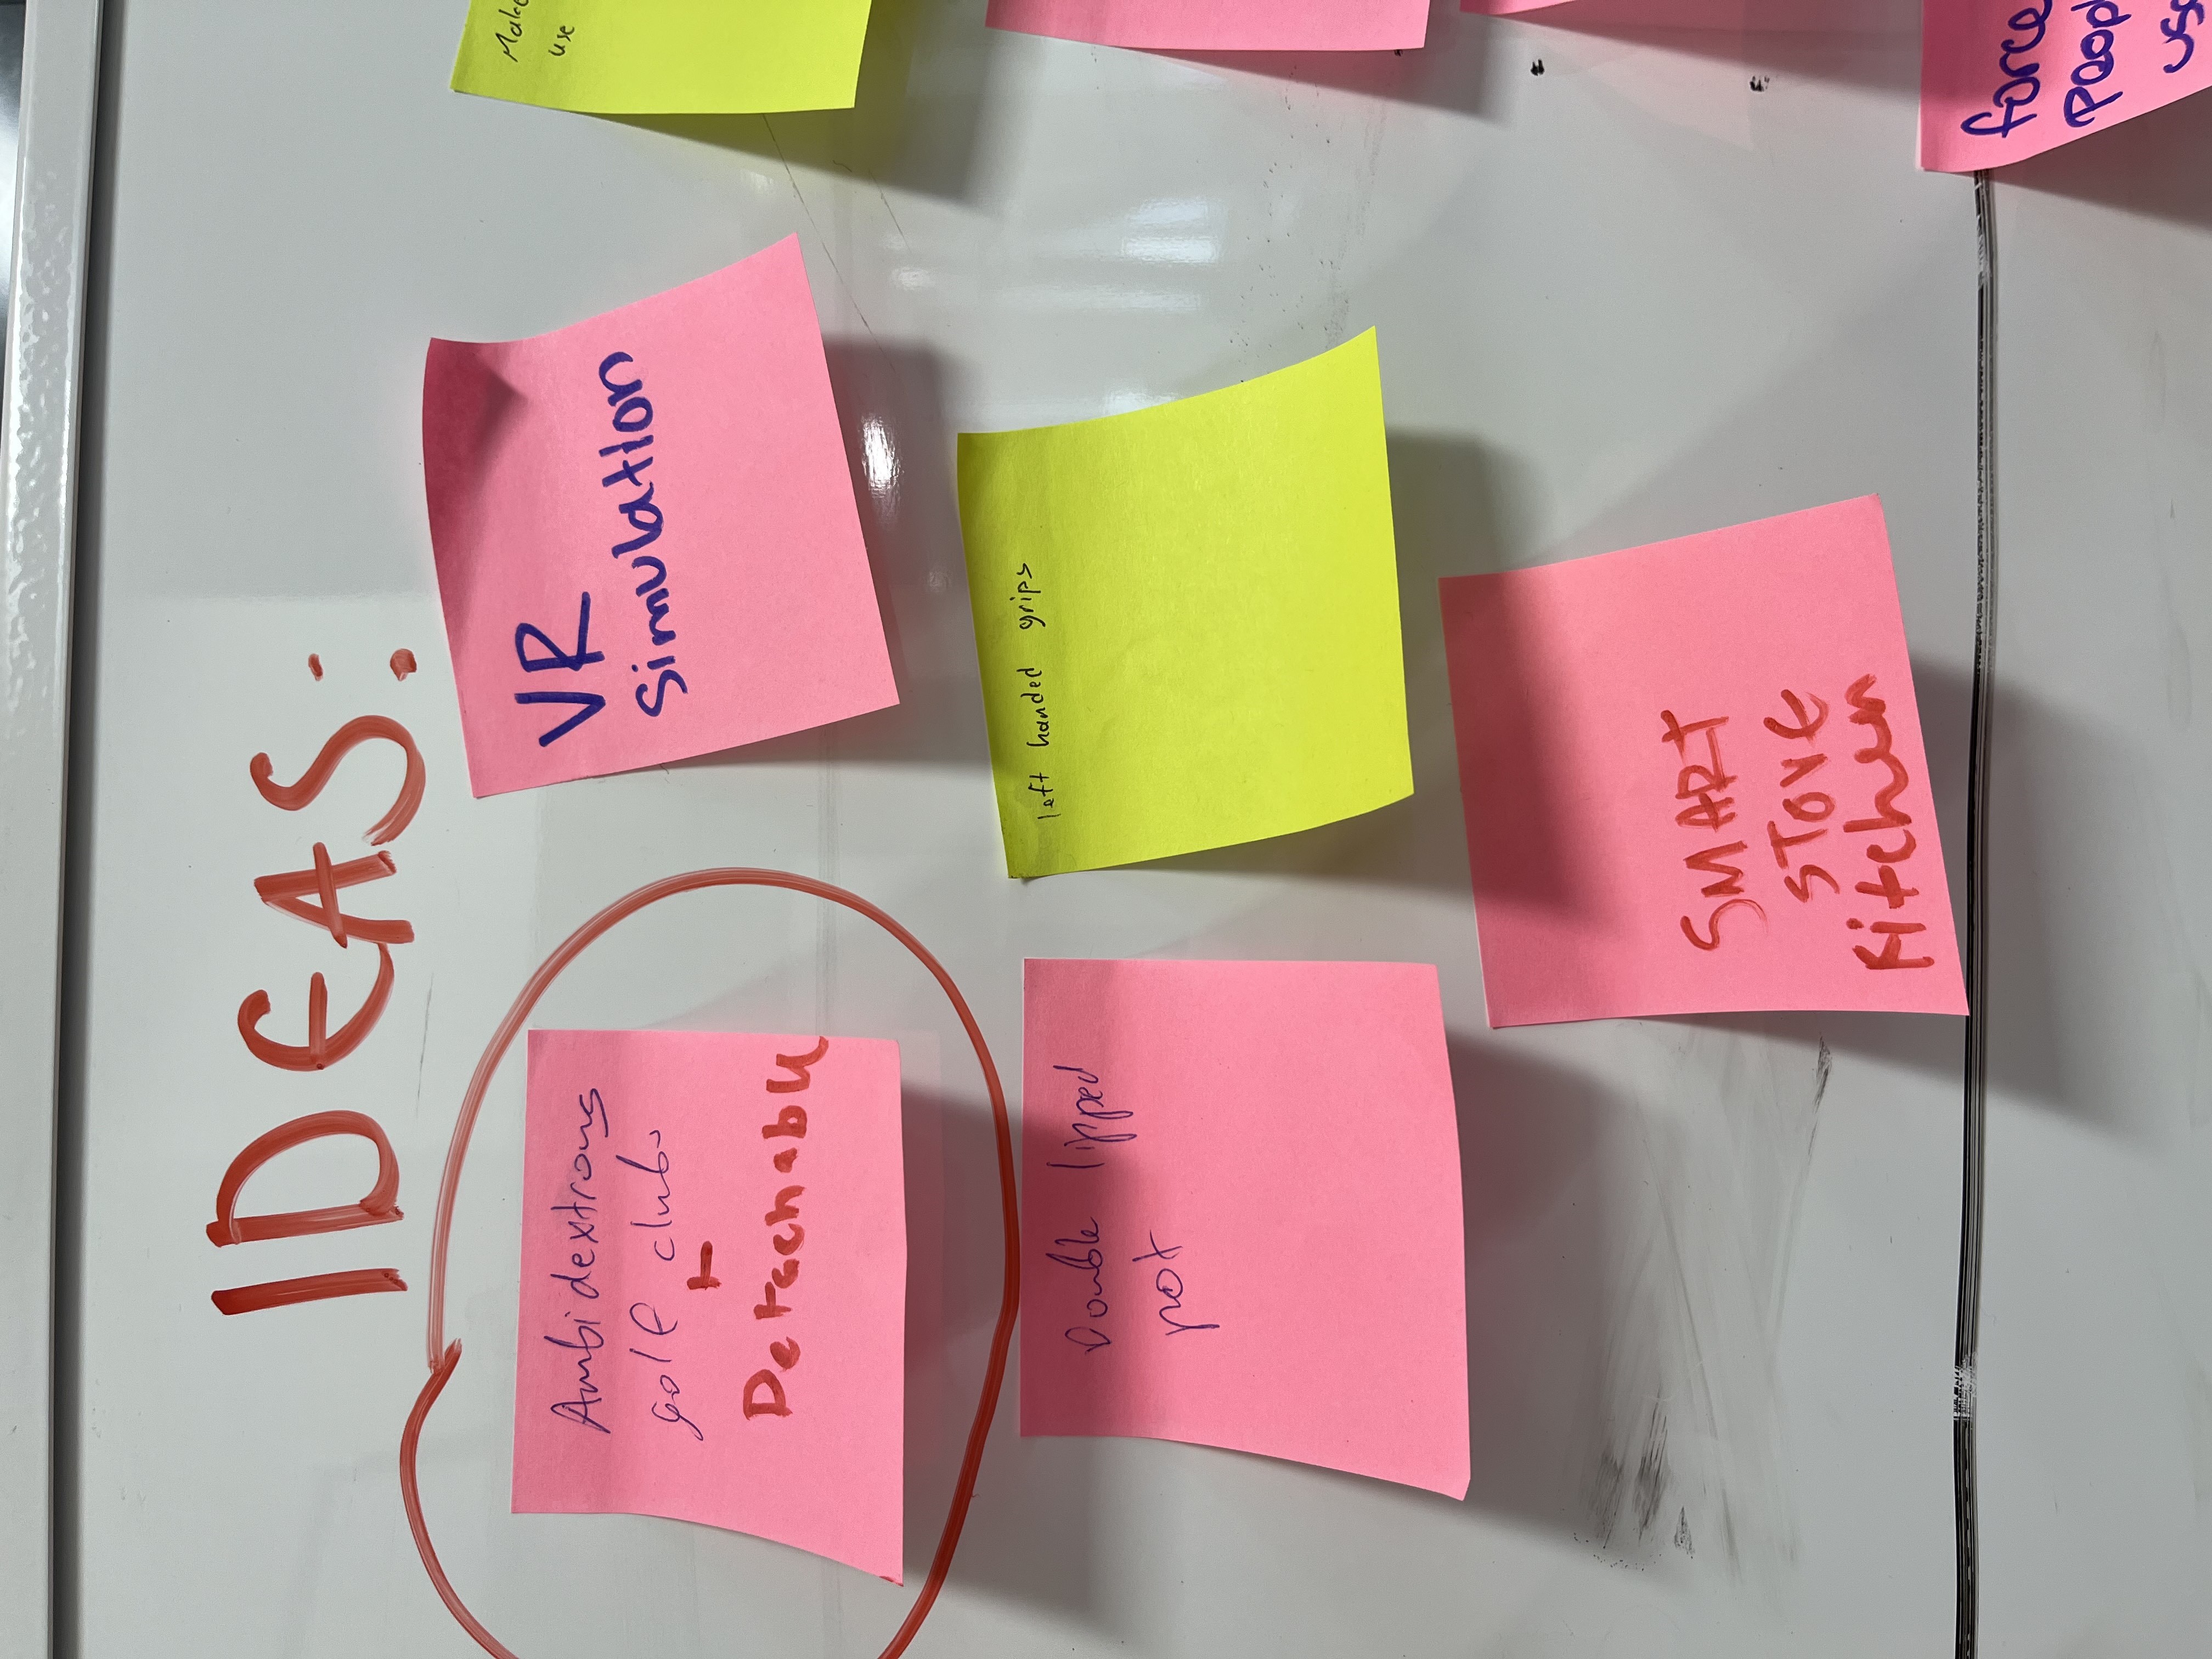 IDEAS:
Ambidextrous
golf clubs
+
Detachable
VR
Simulation
Make
use
Double lipped
pot
left handed grips
SMART
STOVE
Kitchen
force